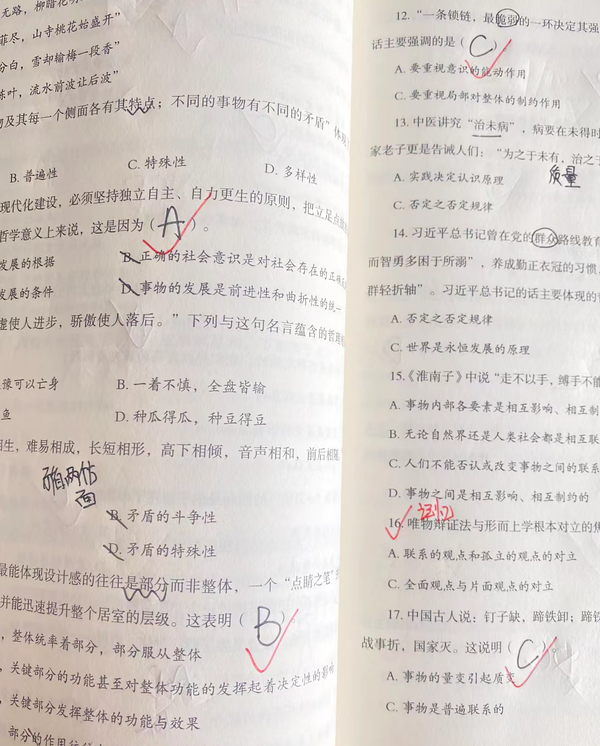 无路，柳暗花
菲尽，山寺桃花始盛开”
分白，雪却输梅一段香”
陈叶，流水前波让后波”
物及其每一个侧面各有其特点；不同的事物有不同的矛盾”体现
B. 普遍性
C. 特殊性
D. 多样性
现代化建设，必须坚持独立自主、自力更生的原则，把立足点
哲学意义上来说，这是因为（A）。
发展的根据
B. 正确的社会意识是对社会存在的正确
发展的条件
D. 事物的发展是前进性和曲折性的统一
虚使人进步，骄傲使人落后。”下列与这句名言蕴含的哲理
豫可以亡身
B. 一着不慎，全盘皆输
鱼
D. 种瓜得瓜，种豆得豆
相生，难易相成，长短相形，高下相倾，音声相和，前后相随
面
B. 矛盾的斗争性
D. 矛盾的特殊性
最能体现设计感的往往是部分而非整体，一个“点睛之笔”
并能迅速提升整个居室的层级。这表明（B）。
，整体统率着部分，部分服从整体
，关键部分的功能甚至对整体功能的发挥起着决定性的影响
，关键部分发挥整体的功能与效果
12. “一条锁链，最脆弱的一环决定其强
话主要强调的是（C）
A. 要重视意识的能动作用
C. 要重视局部对整体的制约作用
13. 中医讲究“治未病”，病要在未得时
家老子更是告诫人们：“为之于未有，治之于
A. 实践决定认识原理
质量
C. 否定之否定规律
14. 习近平总书记曾在党的群众路线教育
而智勇多困于所溺”，养成勤正衣冠的习惯，
群轻折轴”。习近平总书记的话主要体现的
A. 否定之否定规律
C. 世界是永恒发展的原理
15.《淮南子》中说“走不以手，缚手不能
A. 事物内部各要素是相互影响、相互制
B. 无论自然界还是人类社会都是相互联
C. 人们不能否认或改变事物之间的联系
D. 事物之间是相互影响、相互制约的
记忆
16. 唯物辩证法与形而上学根本对立的焦
A. 联系的观点和孤立的观点的对立
C. 全面观点与片面观点的对立
17. 中国古人说：钉子缺，蹄铁卸；蹄铁
战事折，国家灭。这说明（C）。
A. 事物的量变引起质变
C. 事物是普遍联系的